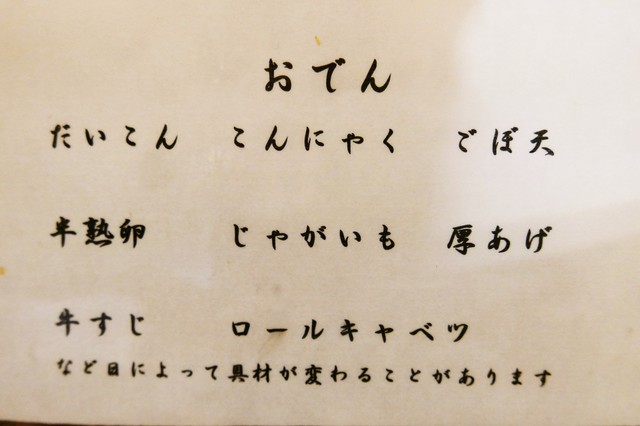 おでん
だいこん こんにゃく ごぼ天
半熟卵 じゃがいも 厚あげ
牛すじ ロールキャベツ
など日によって具材が変わることがあります